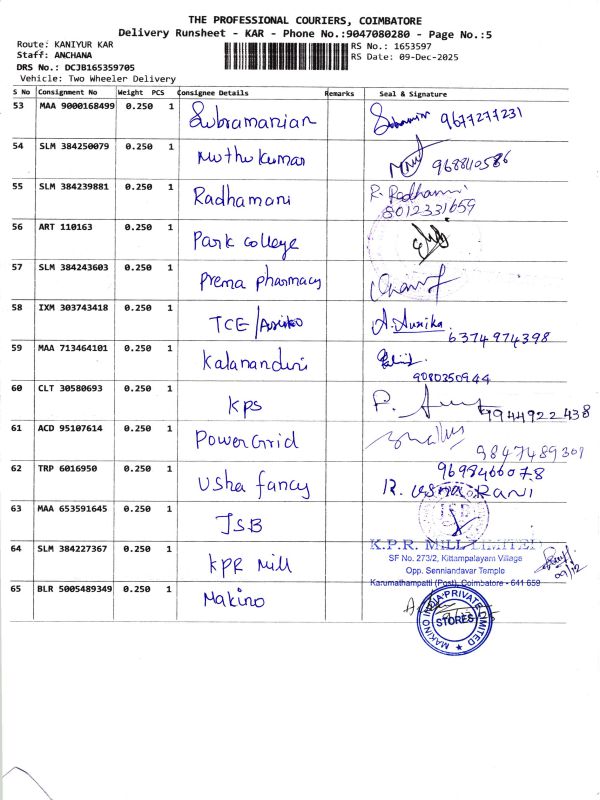 THE PROFESSIONAL COURIERS, COIMBATORE
Delivery Runsheet - KAR - Phone No.:9047080280 - Page No.:5
Route: KANIYUR KAR
RS No.: 1653597
Staff: ANCHANA
RS Date: 09-Dec-2025
DRS No.: DCJB165359705
Vehicle: Two Wheeler Delivery
S No Consignment No Weight PCS Consignee Details Remarks Seal & Signature
53 MAA 9000168499 0.250 1 Subramanian 9677277231
54 SLM 384250079 0.250 1 Muthukumar 968840586
55 SLM 384239881 0.250 1 Radhamani R. Radhamani
8012331659
56 ART 110163 0.250 1 Park College
57 SLM 384243603 0.250 1 Prema pharmacy
58 IXM 303743418 0.250 1 TCE / A. Ausika
6374974398
59 MAA 713464101 0.250 1
9080350944
60 CLT 30580693 0.250 1 KPS P. 9944922438
61 ACD 95107614 0.250 1 PowerGrid
9847489301
62 TRP 6016950 0.250 1 Usha fancy 9698466078
R. USHA RANI
63 MAA 653591645 0.250 1 JSB
64 SLM 384227367 0.250 1 KPR Mill K.P.R. MILL LIMITED
SF No. 273/2, Kittampalayam Village
Opp. Senniandavar Temple
Karumathampatti (Post), Coimbatore - 641 659
09/12
65 BLR 5005489349 0.250 1 Makino
MAKINO INDIA PRIVATE LIMITED
STORES